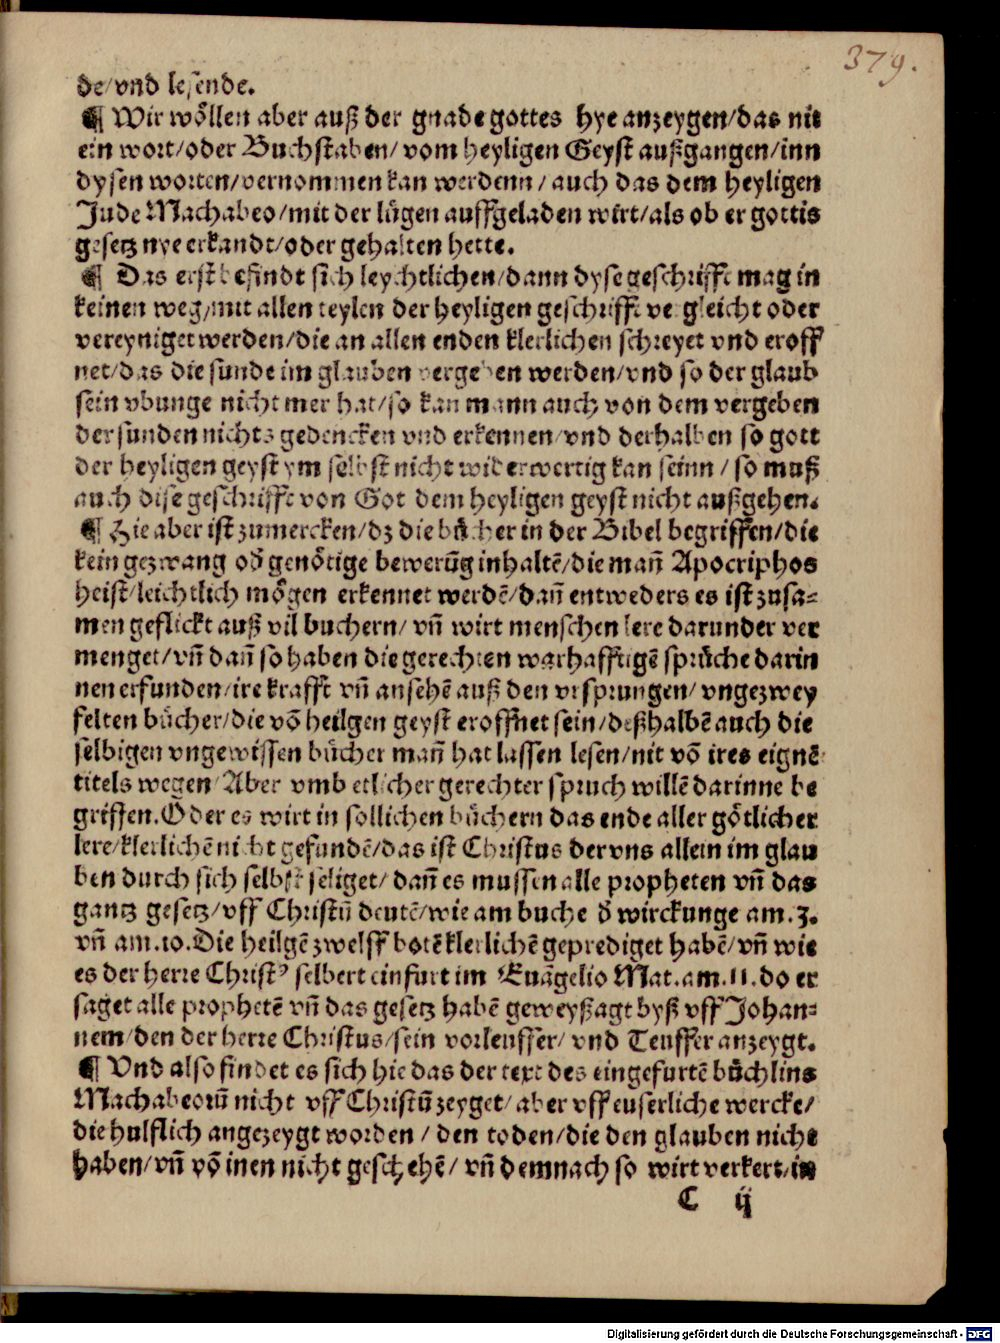 379.
de/vnd lesende.
¶ Wir wöllen aber auß der gnade gottes hye anzeygen/das nit
ein wort/oder Buchstaben/ vom heyligen Geyst außgangen/inn
dysen worten/vernommen kan werdenn/ auch das dem heyligen
Jude Machabeo/mit der lůgen auffgeladen wirt/als ob er gottis
gesetz nye erkandt/oder gehalten hette.
¶ Das erst befindt sich leychtlichen/dann dyse geschrifft mag in
keinen weg/mit allen teylen der heyligen geschrifft vergleicht oder
vereyniget werden/die an allen enden klerlichen schreyet vnd eroff
net/das die sunde im glauben vergeben werden/vnd so der glaub
sein vbunge nicht mer hat/so kan mann auch von dem vergeben
der sunden nichts gedencken vnd erkennen/vnd derhalben so gott
der heyligen geyst ym selbst nicht widerwertig kan seinn/ so muß
auch dise geschrifft von Got dem heyligen geyst nicht außgehen.
¶ Hie aber ist zumercken/dz die bůcher in der Bibel begriffen/die
kein gezwang od̛ genötige bewerūg inhaltē/die mañ Apocriphos
heist/leichtlich mögen erkennet werdē/dañ entweders es ist zusa-
men geflickt auß vil buchern/ vñ wirt menschen lere darunder ver
menget/vñ dañ so haben die gerechten warhafftigē sprůche darin
nen erfunden/ire krafft vñ ansehē auß den vrsprungen/ vngezwey
felten bůcher/die vō heilgen geyst eroffnet sein/deßhalbē auch die
selbigen vngewissen bůcher mañ hat lassen lesen/nit vō ires eignē
titels wegen/Aber vmb etlicher gerechter spruch willē darinne be
griffen.Oder es wirt in sollichen bůchern das ende aller götlicher
lere/klerlichē nicht gefundē/das ist Christus der vns allein im glau
ben durch sich selbst seliget/ dañ es mussen alle propheten vñ das
gantz gesetz/vff Christū deutē/wie am buche d̛ wirckunge am.3.
vñ am.10.Die heilgē zwelff botē klerlichē geprediget habē/vñ wie
es der herre Christꝰ selbert einfurt im Euāgelio Mat.am.11.do er
saget alle prophetē vñ das gesetz habē geweyßagt byß vff Johan-
nem/den der herre Christus/sein vorleuffer/ vnd Teuffer anzeygt.
¶ Vnd also findet es sich hie das der text des eingefurtē bůchlins
Machabeorū nicht vff Christū zeyget/aber vff euserliche wercke/
die hulflich angezeygt worden/ den toden/die den glauben nicht
haben/vñ vō inen nicht geschehē/ vñ demnach so wirt verkert/in
C ij
Digitalisierung gefördert durch die Deutsche Forschungsgemeinschaft - DFG